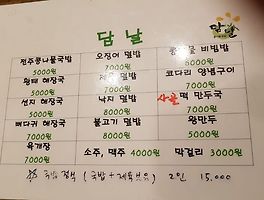 담날
담날
전주콩나물국밥 오징어 덮밥 비빔밥
5000원 7000원
황태 해장국 덮밥 코다리 양념구이
5000원 7000원 7000원
선지 해장국 낙지 덮밥 사골 떡 만두국
5000원 7000원
뼈다귀 해장국 불고기 덮밥 왕만두
7000원 8000원 5000원
육개장 소주, 맥주 4000원 막걸리 3000원
7000원
(국밥 + 제육보유) 2인 15,000